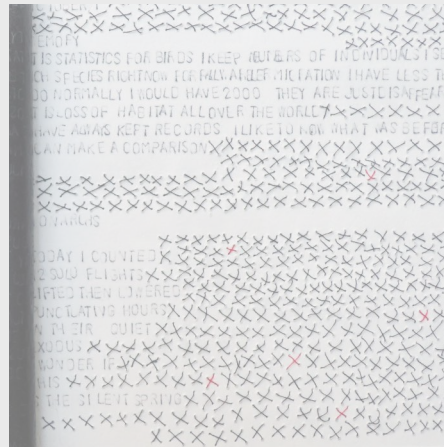 EMORY
T IS STATISTICS FOR BIRDS I KEEP NUMBERS OF INDIVIDUALS I S
CH SPECIES RIGHT NOW FOR FALL MIGRATION I HAVE LESS T
OO NORMALLY I WOULD HAVE 2000 THEY ARE JUST DISAPPEAR
T IS LOSS OF HABITAT ALL OVER THE WORLD
HAVE ALWAYS KEPT RECORDS I LIKE TO NOW WHAT WAS BEFO
CAN MAKE A COMPARISON
ONARCHS
TODAY I COUNTED
FLIGHTS
IFTED THEN LOWERED
PUNCTUATING HOURS
N THEIR QUIET
XODUS
WONDER IF
HIS
THE SILENT SPRING